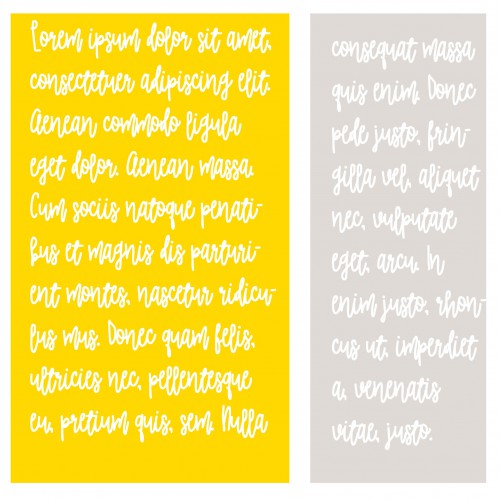 Lorem ipsum dolor sit amet,
consectetuer adipiscing elit.
Aenean commodo ligula
eget dolor. Aenean massa.
Cum sociis natoque penati-
bus et magnis dis parturi-
ent montes, nascetur ridicu-
lus mus. Donec quam felis,
ultricies nec, pellentesque
eu, pretium quis, sem. Nulla
consequat massa
quis enim. Donec
pede justo, frin-
gilla vel, aliquet
nec, vulputate
eget, arcu. In
enim justo, rhon-
cus ut, imperdiet
a, venenatis
vitae, justo.